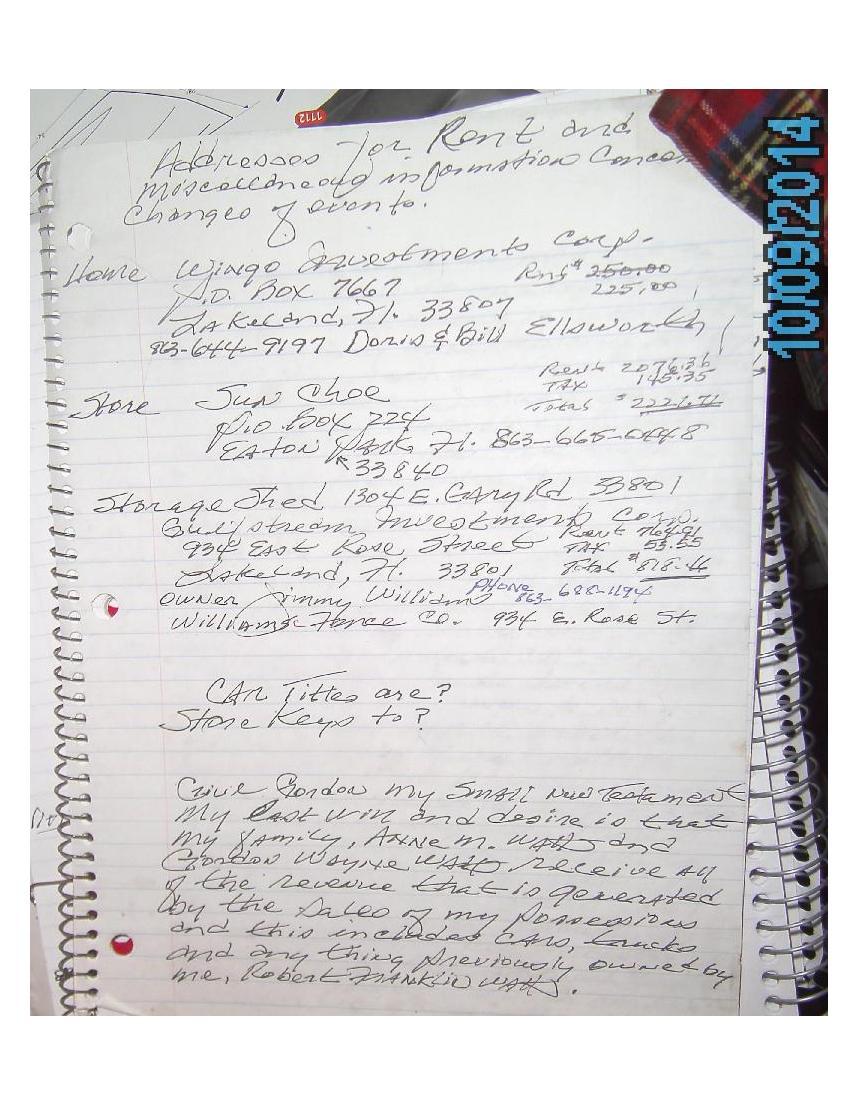 1112
Addresses for Rent and
Miscellaneous information Concern
Changes of events.
Home Wingo Investments Corp.
Rent $ 250.00
P.O. Box 7667
225.00
Lakeland, Fl. 33807
863-644-9197 Doris & Bill Ellsworth
Store Sun Choe
Rent 2076.36
TAX 145.35
Total $ 2221.71
P.O. Box 224
EATON PARK Fl. 863-665-0448
33840
Storage Shed 1304 E. GARY Rd 33801
Gulfstream Investments Corp.
934 East Rose Street
Rent 764.91
TAX 53.55
Lakeland, Fl. 33801
Total $ 818.46
PHONE 863-688-1194
owner Jimmy Williams
Williams Fence Co. 934 E. Rose St.
CAR Titles are?
Store Keys to?
Give Gordon my Small New Testament
My Last will and desire is that
my family, ANNE M. WATTS and
Gordon Wayne WATTS receive all
of the revenue that is generated
by the sales of my possessions
and this includes cars, trucks
and any thing previously owned by
me, Robert FRANKLIN WATTS.
10/09/2014